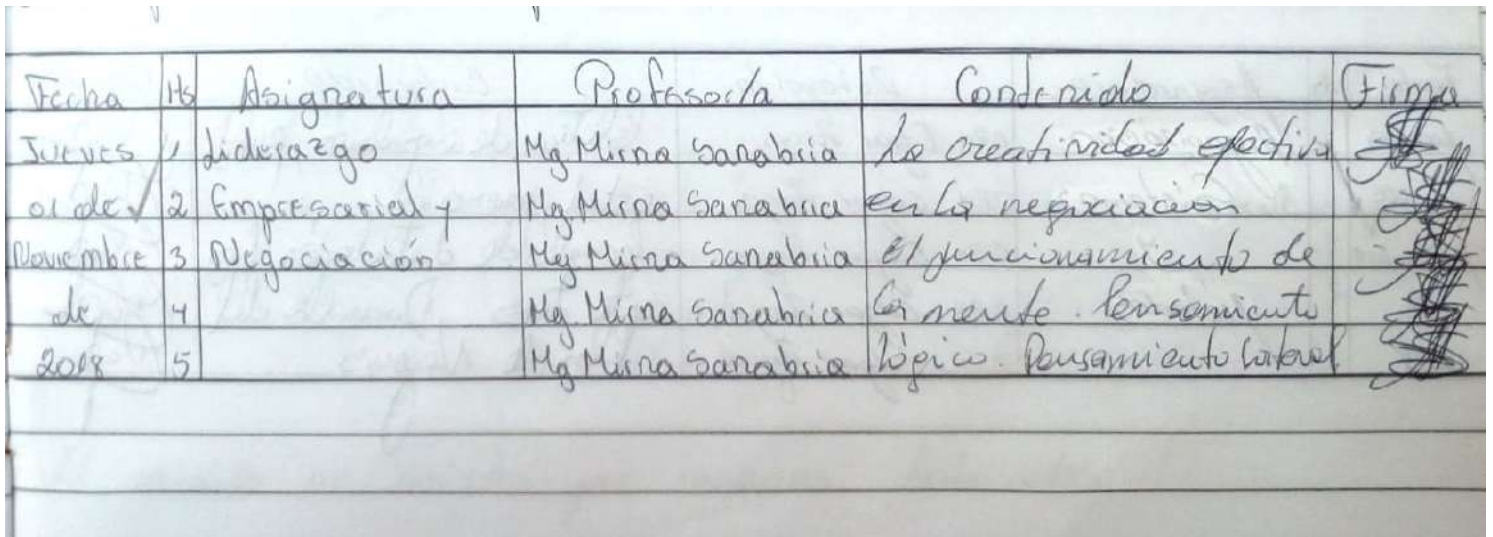 Fecha Hs Asignatura Profesor/a Contenido Firma
Jueves 1 Liderazgo Mg Mirna Sanabria La creatividad efectiva
01 de 2 Empresarial y Mg Mirna Sanabria en la negociación
Noviembre 3 Negociación Mg Mirna Sanabria El funcionamiento de
de 4 Mg. Mirna Sanabria la mente. Pensamiento
2018 5 Mg Mirna Sanabria lógico. Pensamiento lateral